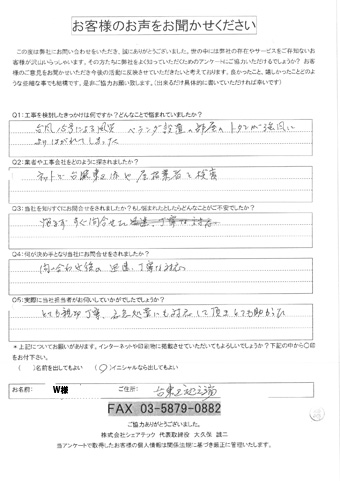 お客様のお声をお聞かせください
この度は弊社にお問い合わせをいただき、誠にありがとうございました。世の中には弊社の存在やサービスをご存知ないお
客様が沢山いらっしゃいます。その方たちに弊社をよりよく知っていただくためのアンケートにご協力いただけるでしょうか？お
客様のご意見をお聞かせいただき今後の活動に反映させていただきたいと考えております。良かったこと、嬉しかったことどのよ
うな些細な事でも結構です。是非ご協力お願い致します。(出来るだけ具体的に書いていただければ幸いです)
Q1:工事を検討したきっかけは何ですか？どんなことで悩まれていましたか？
台風15号による風災 ベランダ設置の部屋のトタンが強風に
よりはがれてしまった
Q2:業者や工事会社をどのように探されましたか？
ネットで台東区 屋根業者と検索
Q3:当社を知りすぐにお問合せをされましたか？もし悩まれたとしたらどんなことがご不安でしたか？
すぐ問合せ 迅速、丁寧な対応
Q4:何が決め手となり当社にお問合せをされましたか？
問い合わせ後の迅速、丁寧な対応
Q5:実際に当社担当者がお伺いしていかがでしたでしょうか？
とても親切丁寧、応急処置にも対応して頂きとても助かった
＊上記についてお願いがあります。インターネットや印刷物に掲載させていただいてもよろしいでしょうか？下記の中から〇印
をお付下さい。
( )名前を出してもよい (〇)イニシャルなら出してもよい
お名前: W様 ご住所: 台東区
FAX 03-5879-0882
ご協力ありがとうございました。
株式会社シェアテック 代表取締役 大久保 誠二
当アンケートで取得したお客様の個人情報は関係法規に基づき厳正に管理いたします。